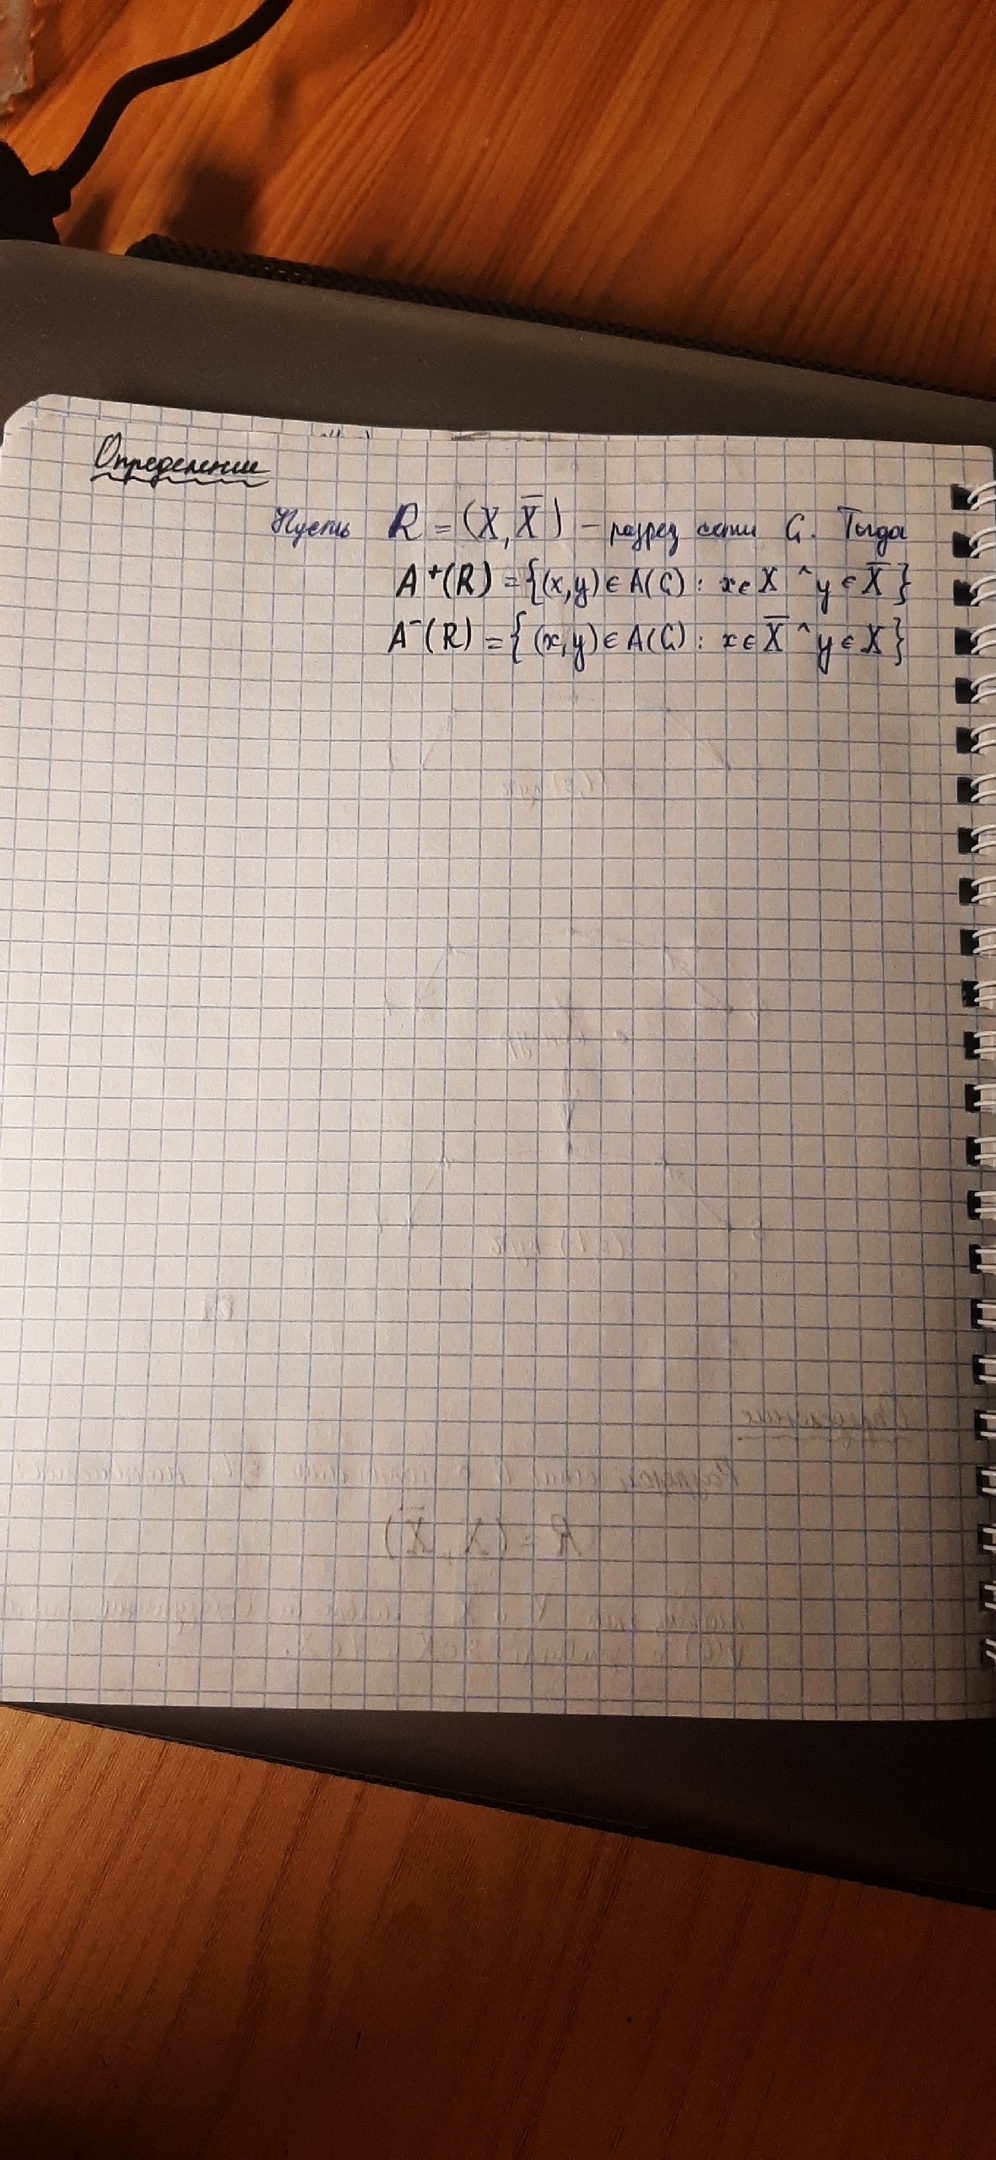 Определение
Пусть R = (X, X̅) – разрез сети G. Тогда
A⁺(R) = {(x,y) ∈ A(G) : x ∈ X ^ y ∈ X̅}
A⁻(R) = {(x,y) ∈ A(G) : x ∈ X̅ ^ y ∈ X}